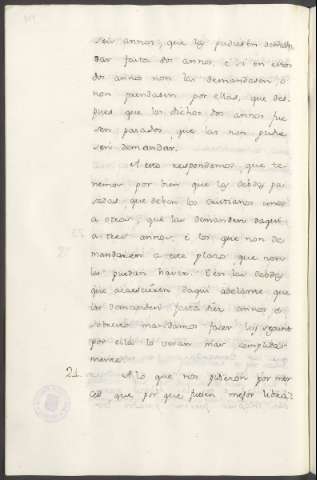 seis annos, que las pudiesen deman
dar fasta dos annos, e si en estos
dos annos non las demandasen o
non prendasen por ellas, que des
pues que los dichos dos annos fue
sen pasados, que las non pudie
sen demandar.
A esto respondemos, que te
nemos por bien que las debdas pa
sadas que deban los cristianos unos
a otros, que las demanden daqui
a tres annos, e los que non de
mandaren a este plaso que non
las puedan haver. E en las debdas
que acaescieren daqui adelante que
las demanden fasta annos e
sobresto mandamos facer los
por ellas lo veran mas complida
mente.
21. A lo que nos pidieron por mer
ced, que por que fuesen mejor